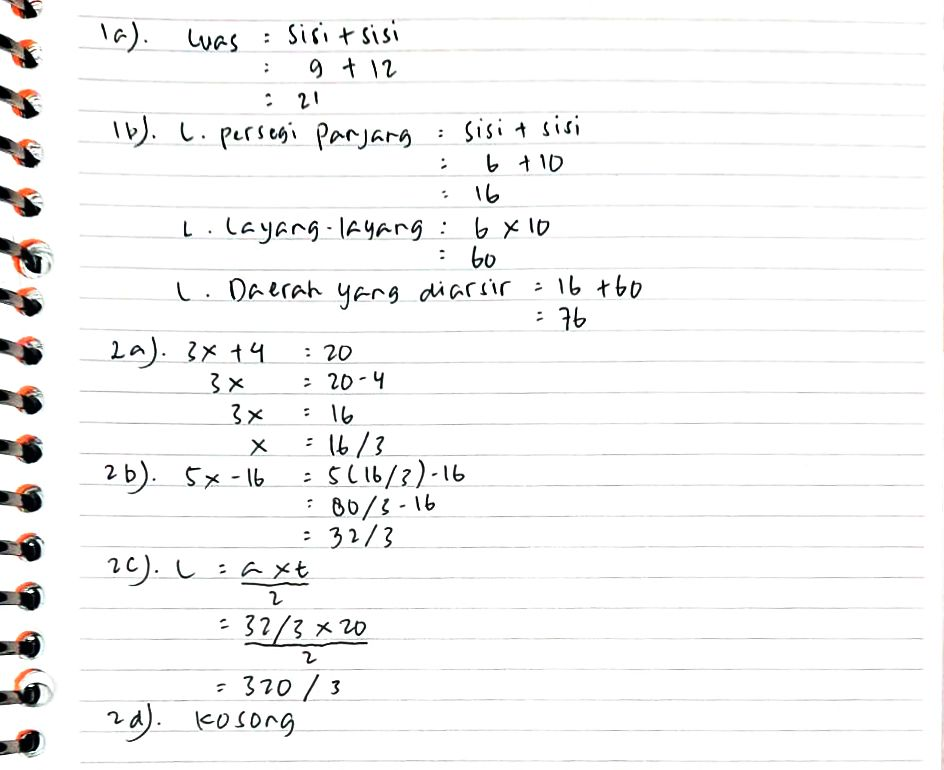 1a). Luas : sisi + sisi
: 9 + 12
: 21
1b). L. persegi Panjang : sisi + sisi
: 6 + 10
: 16
L. Layang-layang : 6 x 10
: 60
L. Daerah yang diarsir = 16 + 60
= 76
2a). 3x + 4 : 20
3x = 20 - 4
3x = 16
x = 16/3
2b). 5x - 16 = 5(16/3) - 16
= 80/3 - 16
= 32/3
2c). L = a x t
2
= 32/3 x 20
2
= 320 / 3
2d). kosong